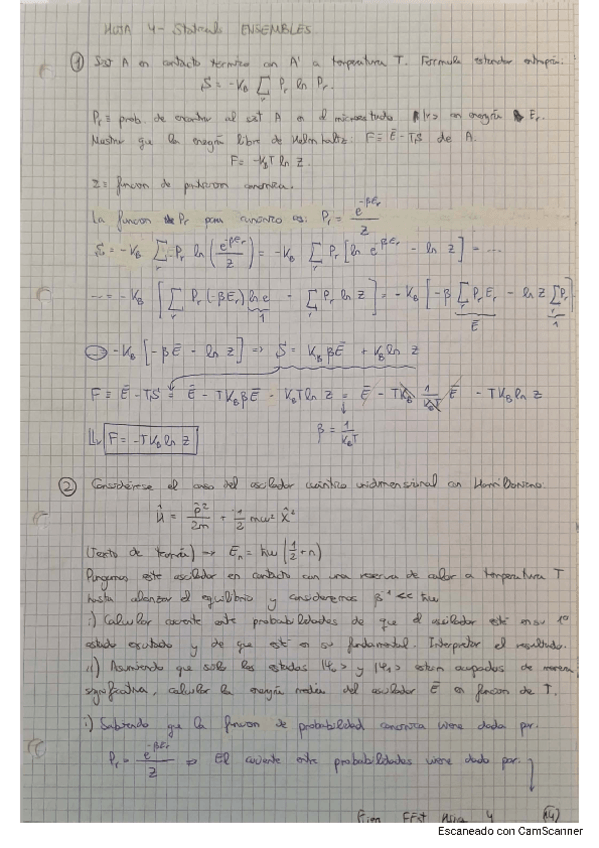 HOJA 4 - Statmech ENSEMBLES
① Sist A en contacto termico con A' a temperatura T. Formula estandar entropia:
S = -K_B Σ_r P_r ln P_r.
P_r ≡ prob. de encontrar al sist A en el microestado |r> con energía E_r.
Mostrar que la energía libre de Helmholtz: F = Ē - TS de A.
F = -K_B T ln Z.
Z = funcion de particion canonica.
La funcion P_r para canonico es: P_r = e^{-βE_r}/Z
S = -K_B Σ_r P_r ln (e^{-βE_r}/Z) = -K_B Σ_r P_r [ln e^{-βE_r} - ln Z] = ...
... = -K_B [Σ_r P_r (-βE_r) ln e - Σ_r P_r ln Z] = -K_B [-β Σ_r P_r E_r - ln Z Σ_r P_r]
1 Ē 1
= -K_B [-βĒ - ln Z] => S = K_B βĒ + K_B ln Z
F = Ē - TS = Ē - TK_B βĒ - K_B T ln Z = Ē - TK_B 1/(K_B T) Ē - TK_B ln Z
F = -TK_B ln Z β = 1/(K_B T)
② Considérese el caso del oscilador cuántico unidimensional con Hamiltoniano:
Ĥ = p̂²/2m + 1/2 mω² X̂²
(Texto de teoría) → E_n = ħω (1/2 + n)
Pongamos este oscilador en contacto con una reserva de calor a temperatura T
hasta alcanzar el equilibrio y consideremos β⁻¹ << ħω
i) Calcular cociente entre probabilidades de que el oscilador esté en su 1º
estado excitado y de que esté en su fundamental. Interpretar el resultado.
ii) Asumiendo que solo los estados |φ₀> y |φ₁> están ocupados de manera
significativa, calcular la energía media del oscilador Ē en funcion de T.
i) Sabiendo que la funcion de probabilidad canonica viene dada por:
P_r = e^{-βE_r}/Z => El cociente entre probabilidades viene dado por:
4 (14)
Escaneado con CamScanner